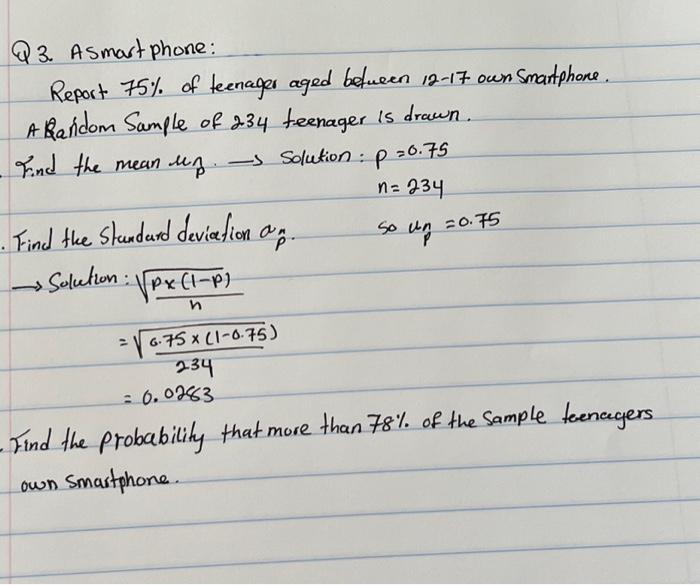 Q3. A smartphone:
Report 75% of teenager aged between 12-17 own Smartphone.
A Random Sample of 234 teenager is drawn.
Find the mean up̂. → Solution: p = 0.75
n = 234
so up̂ = 0.75
. Find the Standard deviation ap̂.
→ Solution: √p×(1-p)
n
= √0.75 × (1-0.75)
234
= 0.0283
. Find the probability that more than 78% of the sample teenagers
own smartphone.